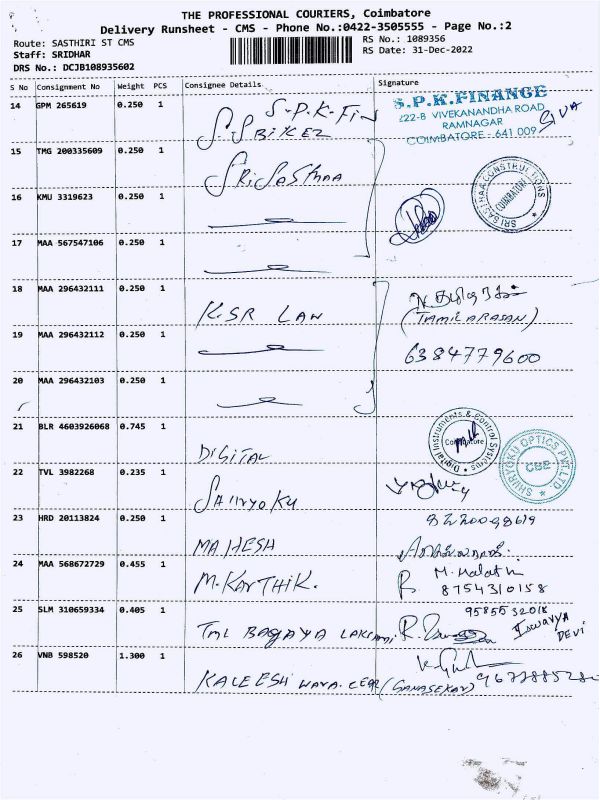 THE PROFESSIONAL COURIERS, Coimbatore
Delivery Runsheet - CMS - Phone No.:0422-3505555 - Page No.:2
Route: SASTHIRI ST CMS
Staff: SRIDHAR
DRS No.: DCJB108935602
RS No.: 1089356
RS Date: 31-Dec-2022
S No Consignment No Weight PCS Consignee Details Signature
14 GPM 265619 0.250 1 S-P-K-Fin
S.P.K.FINANCE
222-B VIVEKANANDHA ROAD
RAMNAGAR
COIMBATORE - 641 009
SIVA
15 TMG 200335609 0.250 1
Sri Sasthaa
SRI SASTHAA CONSTRUCTIONS
COIMBATORE
16 KMU 3319623 0.250 1
17 MAA 567547106 0.250 1
18 MAA 296432111 0.250 1
K.SR LAW
(TAMILARASAN)
19 MAA 296432112 0.250 1
6384779600
20 MAA 296432103 0.250 1
21 BLR 4603926068 0.745 1
DIGITAL
Digital Instruments & Control Systems
Coimbatore
SHURYOKU OPTICS PVT.LTD.
CBE
22 TVL 3982268 0.235 1
23 HRD 20113824 0.250 1
MAHESH
24 MAA 568672729 0.455 1
M.KARTHIK.
M. Malath
8754310158
25 SLM 310659334 0.405 1
9585532018
Iswarya
Devi
26 VNB 598520 1.300 1
KALEESHWARA
(GANASEKAR)